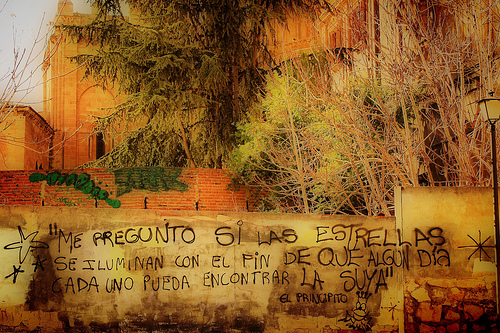 "ME PREGUNTO SI LAS ESTRELLAS
SE ILUMINAN CON EL FIN DE QUE ALGUN DÍA
CADA UNO PUEDA ENCONTRAR LA SUYA"
EL PRINCIPITO